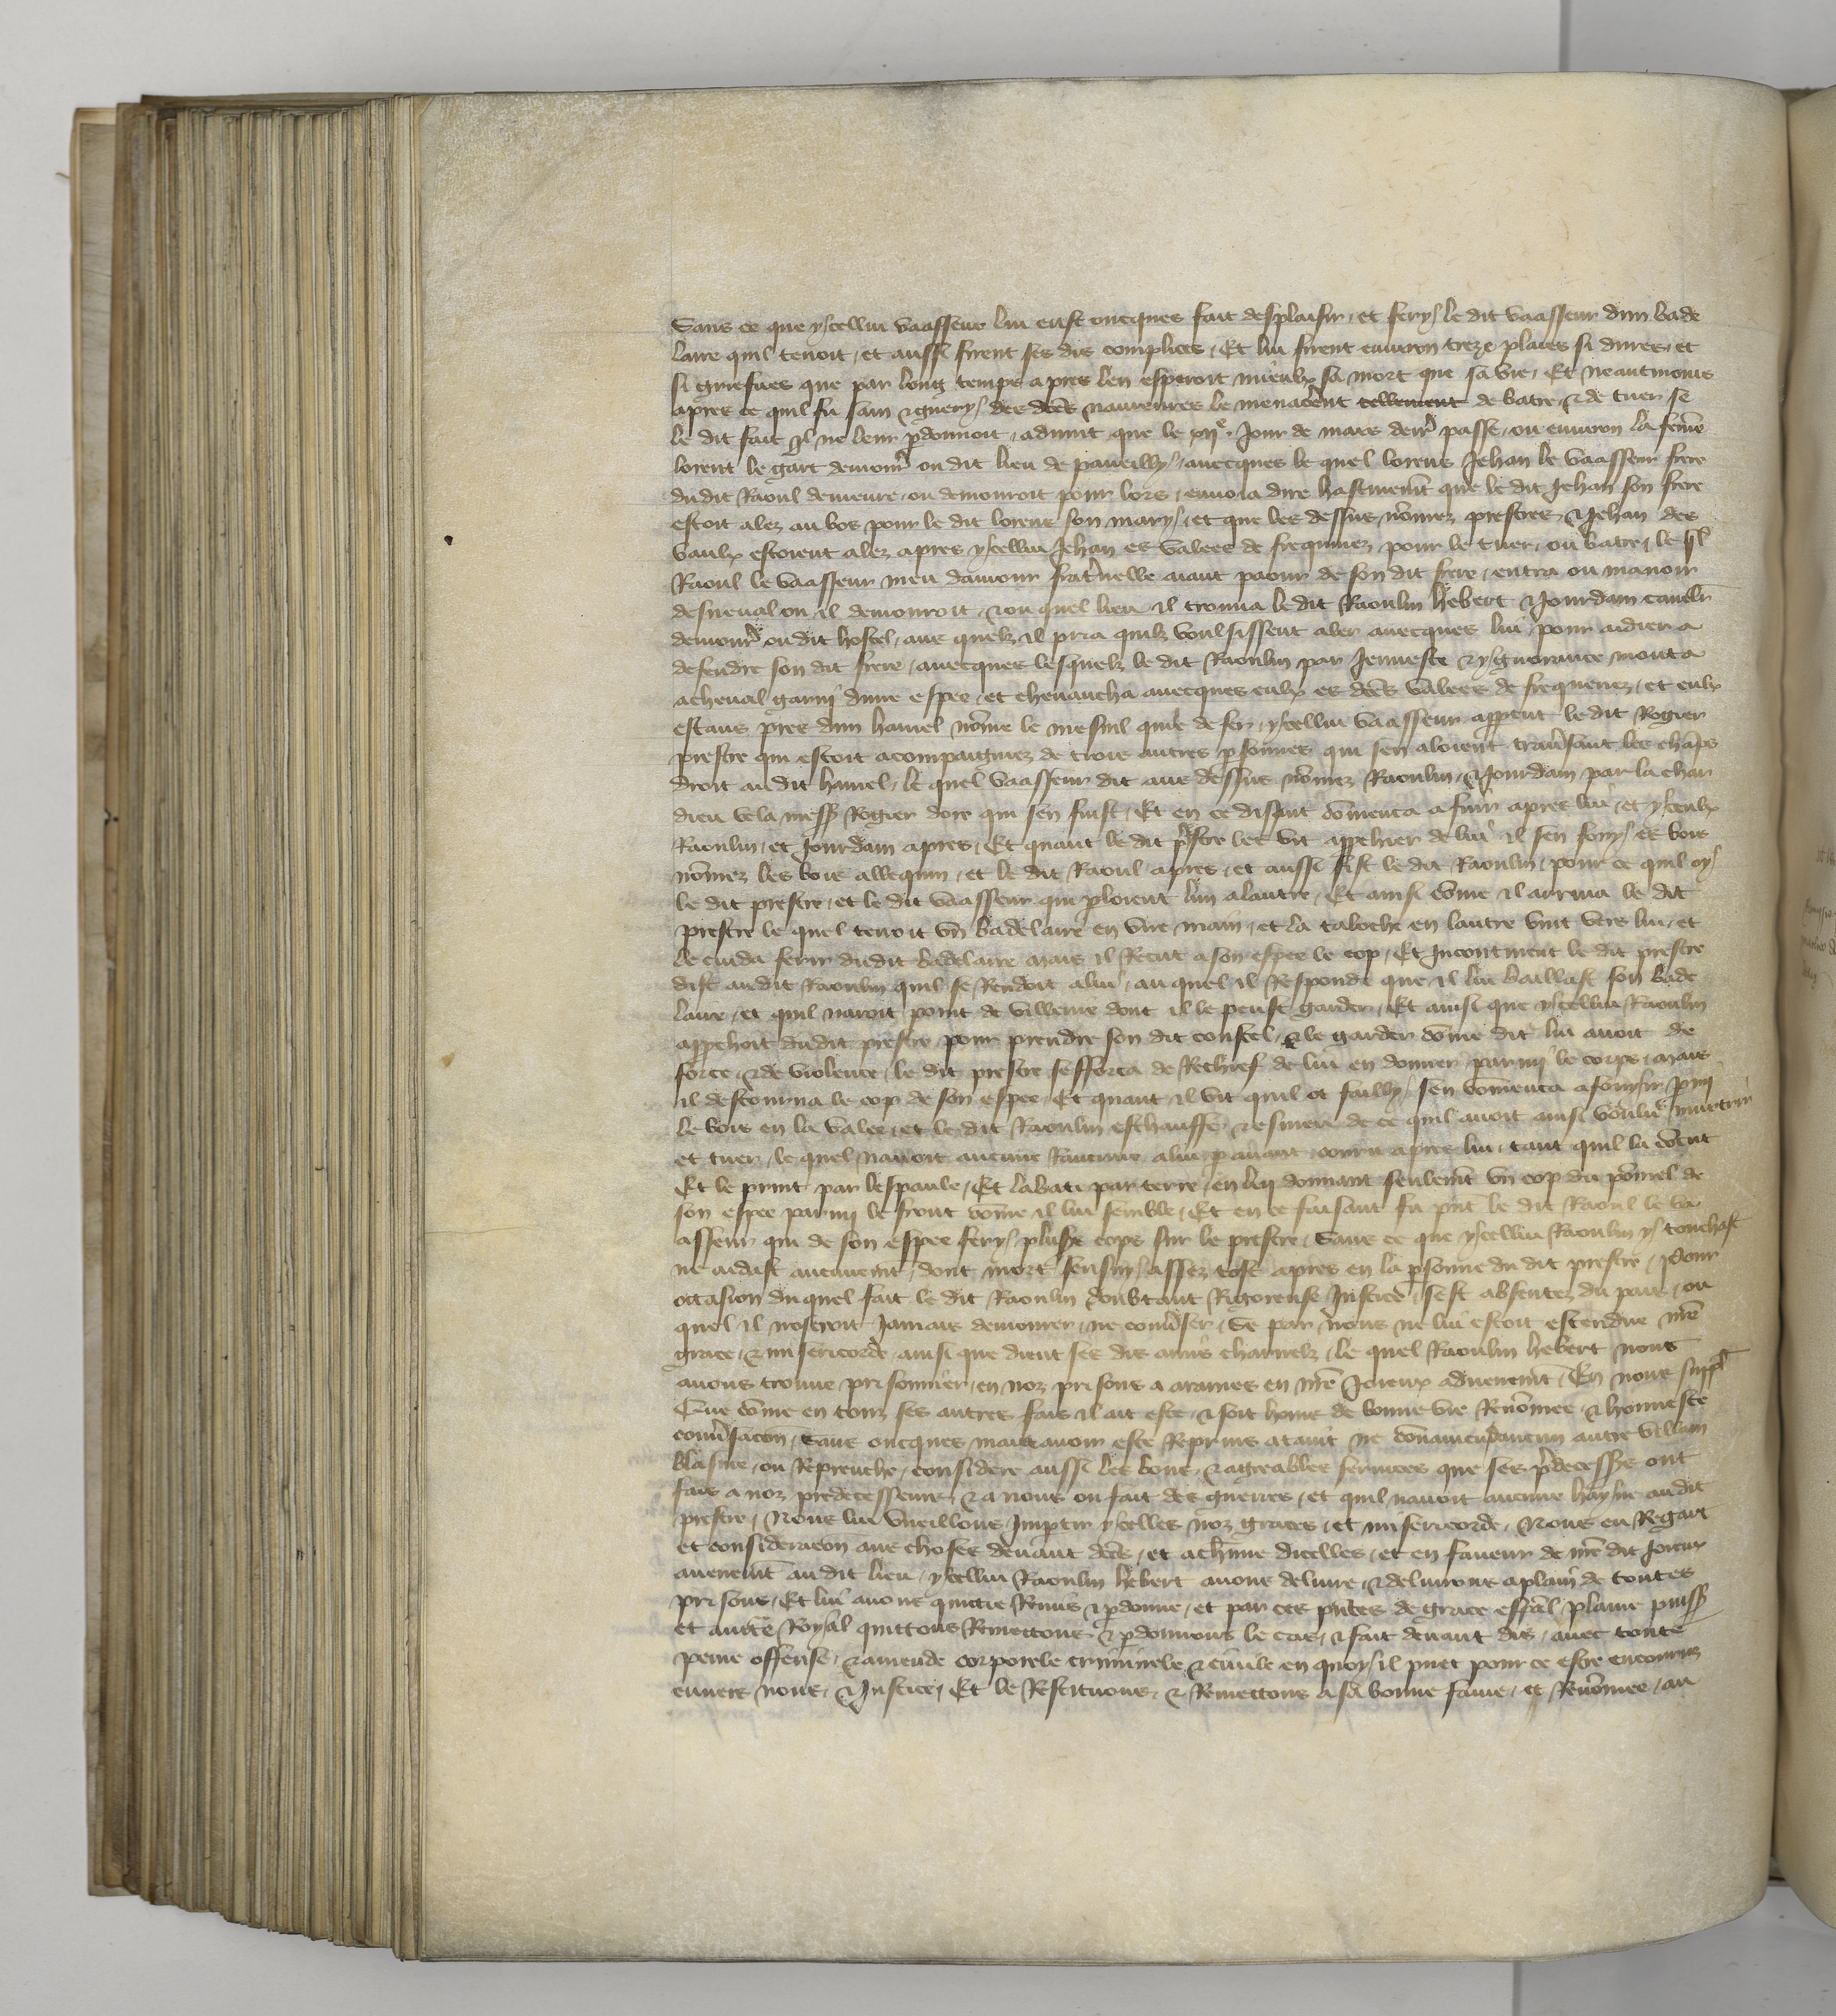 Sans ce que ycellui vaasseur lui eust oncques fait desplaisir, et fery le dit vaasseur dun bade
laire quil tenoit, et aussi firent ses dis complices, Et lui firent environ treze plaies si dures, et
si griefves que par long temps apres len esperoit mieulx sa mort que sa vie, Et neantmoins
apres ce quil fu sain & guery des dces navreures le menacent tellement de batre & de tuer se
le dit fait il ne leur pdonnoit, advint que le xije. Jour de mars derr passe, ou environ la feme
lorent le gart demour ou dit lieu de paveilly, avecques le quel lorens Jehan le vaasseur frere
du dit Raoul demeure, ou demouroit pour lors, envoia dire hastivemt que le dit Jehan son frere
estoit alez au bos pour le dit lorens son mary, et que les dessus nomez prestres, & Jehan des
vaulx estoient alez apres ycellui Jehan es valees de frequiennez pour le tuer, ou batre, le ql
Raoul le vaasseur meu damour fratnelle aiant paour de son dit frere, entra ou manoir
desneval ou il demouroit, & ou quel lieu il trouva le dit Raoulin hebert & Jourdain cavelr
demour ou dit hostel, aus quelz il pria quilz voulsissent aler avecques lui pour aidier a
defendre son dit frere, avecques lesquelz le dit Raoulin par Jennesce & ygnorance monta
a cheval garni dune espee, et chevaucha avecques eulx es dces valees de frequennez, et eulx
estans pres dun hamel nome le mesnil quide de fer, ycellui vaasseur apput le dit Rogier
prestre qui estoit acompaignez de trois autres psonnes qui sen aloient traversant les champs
droit au dit hamel, le quel vaasseur dit aus dessus nomez Raoulin, & Jourdain par la char
dieu vela mess Rogier dore qui sen fuist, Et en ce disant comenca a fuir apres lui, et yceulx
Raoulin, et Jourdain apres, Et quant le dit pstre les vit approchier de lui il sen fouy es bois
nomez les bois allequin, et le dit Raoul apres, et aussi fist le dit Raoulin, pour ce quil oy
le dit prestre, et le dit vaasseur qui ploient lun a lautre, Et ainsi come il arriva le dit
prestre le quel tenoit un badelaire en une main, et la taloche en lautre vint vers lui, et
le cuida ferir du dit badelaire mais il Recut a son espee le cop, Et Incontinent le dit prestre
dist au dit Raoulin quil se Rendoit a lui, au quel il Respondi que il lui baillast son bade
laire, et quil naroit point de villenie dont il le peust garder, Et ainsi que ycellui Raoulin
approchoit du dit prestre pour prendre son dit coustel, & le garder come dit lui avoit de
force, & de violence, le dit prestre sefforca de Rechief de lui en donner parmi le corps, mais
il destourna le cop de son espee, Et quant il vit quil ot failly, sen comenca a fouyr pmi
le bois en la valee, et le dit Raoulin eschauffe & esmeu de ce quil avoit ainsi voulu murtrir
et tuer, le quel navoit aucune Rancune a lui paravant couru apres lui, tant quil la coent
Et le print par lespaule, Et labati par terre, en lui donnant seulemt un cop du pomel de
son espee parmi le front come il lui semble, Et en ce faisant fu pnt le dit Raoul le va
asseur qui de son espee fery plusrs cops sur le prestre, Sans ce que ycellui Raoulin y touchast
ne aidast aucunemt, dont mort sensuy assez tost apres en la psonne du dit prestre, Pour
occasion du quel fait le dit Raoulin doubtant Rigoreuse Justice, sest absentez du pais, ou
quel il noseroit Jamais demourer, ne converser, Se par nous ne lui estoit estendue nre
grace, & misericorde, ainsi que dient ses dis amis charnelz, le quel Raoulin hebert nous
avons trouve prisonnier, en noz prisons a arames en nre Joieux advenemt, En nous suppl
Que come en touz ses autres fais il ait este, & soit home de bonne vie Renomee, & honneste
conversacon, Sans oncques mais avoir este Reprins ataint ne convaincu daucun autre villain
blasme, ou Reprouche, considere aussi les bons, & agreables services que ses pdecessrs ont
fais a noz predecesseurs, & a nous ou fait des guerres, et quil navoit aucune hayne au dit
prestre, Nous lui vueillons Impartir ycelles noz graces, et misericorde, Nous eu Regart
et consideracon aus choses devant dces, et a chune dicelles, et en faveur de nre dit Joieux
avenemt au dit lieu, ycellui Raoulin hebert avons delivre, & delivrons a plain de toutes
prisons, Et lui avons quictie Remis & pdonne, et par ces pntes de grace espcal plaine puiss
et aucte Royal quittons Remettons, & pdonnons le cas, & fait devant dis, avec toute
peine offense, & amende corporele criminele & civile en quoy il puet pour ce estre encouruz
envers nous, & Justice, Et le Restituons, & Remettons a sa bonne fame, et Renomee, au